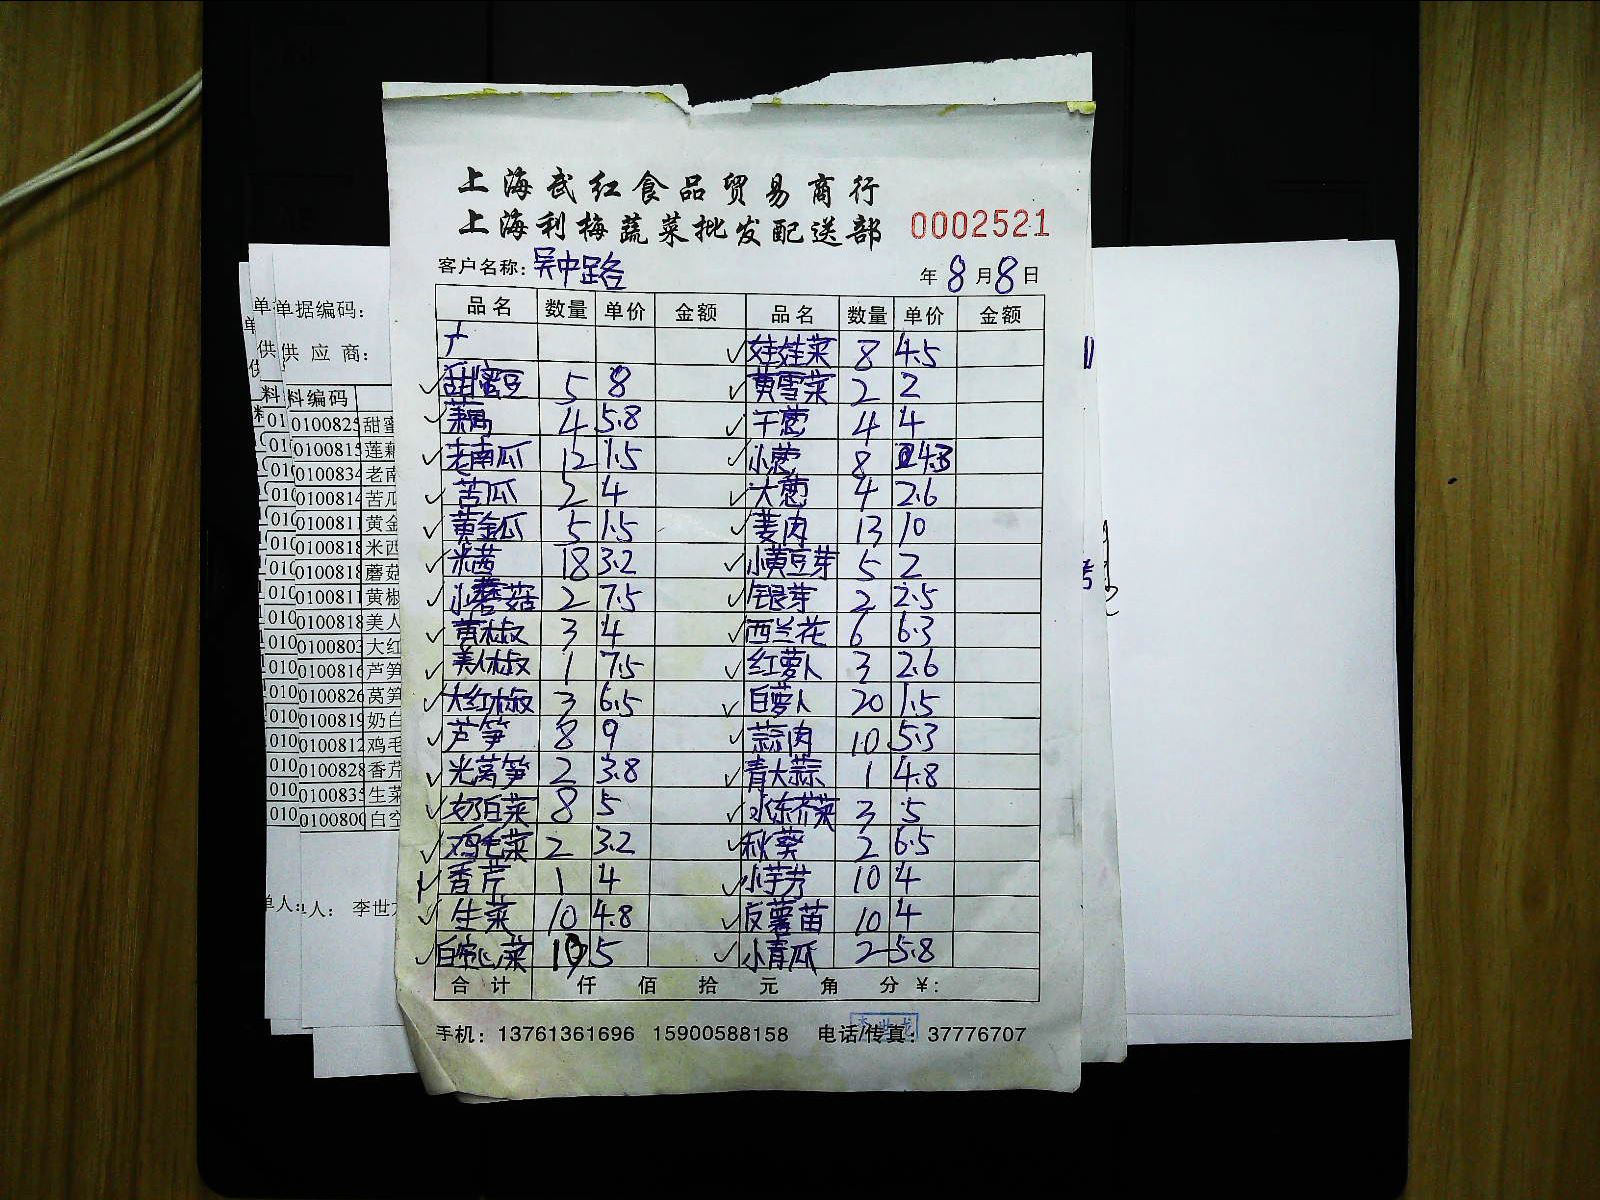 上海武红食品贸易商行
上海利梅蔬菜批发配送部 0002521
客户名称: 吴中路 年 8 月 8 日
品名 数量 单价 金额 品名 数量 单价 金额
娃娃菜 8 4.5
甜蜜豆 5 8 黄雪菜 2 2
藕 4 5.8 干葱 4 4
老南瓜 12 1.5 小葱 8 4.3
苦瓜 2 4 大葱 4 2.6
黄金瓜 5 1.5 姜肉 13 10
米茜 18 3.2 小黄豆芽 5 2
小蘑菇 2 7.5 银芽 2 2.5
黄椒 3 4 西兰花 6 6.3
美人椒 1 7.5 红萝卜 3 2.6
大红椒 3 6.5 白萝卜 20 1.5
芦笋 8 9 蒜肉 10 5.3
光莴笋 2 3.8 青大蒜 1 4.8
奶白菜 8 5 水东芥菜 3 5
鸡毛菜 2 3.2 秋葵 2 6.5
香芹 1 4 小芋艿 10 4
生菜 10 4.8 反薯苗 10 4
白空心菜 10 5 小青瓜 2 5.8
合计 仟 佰 拾 元 角 分 ¥:
手机: 13761361696 15900588158 电话/传真: 37776707
单据编码:
供应商:
料编码
0100825 甜蜜
0100815 莲藕
0100834 老南
0100814 苦瓜
0100811 黄金
0100818 米西
0100818 蘑菇
0100811 黄椒
0100818 美人
0100803 大红
0100816 芦笋
0100826 莴笋
0100819 奶白
0100812 鸡毛
0100828 香芹
0100835 生菜
0100800 白空
单人: 李世